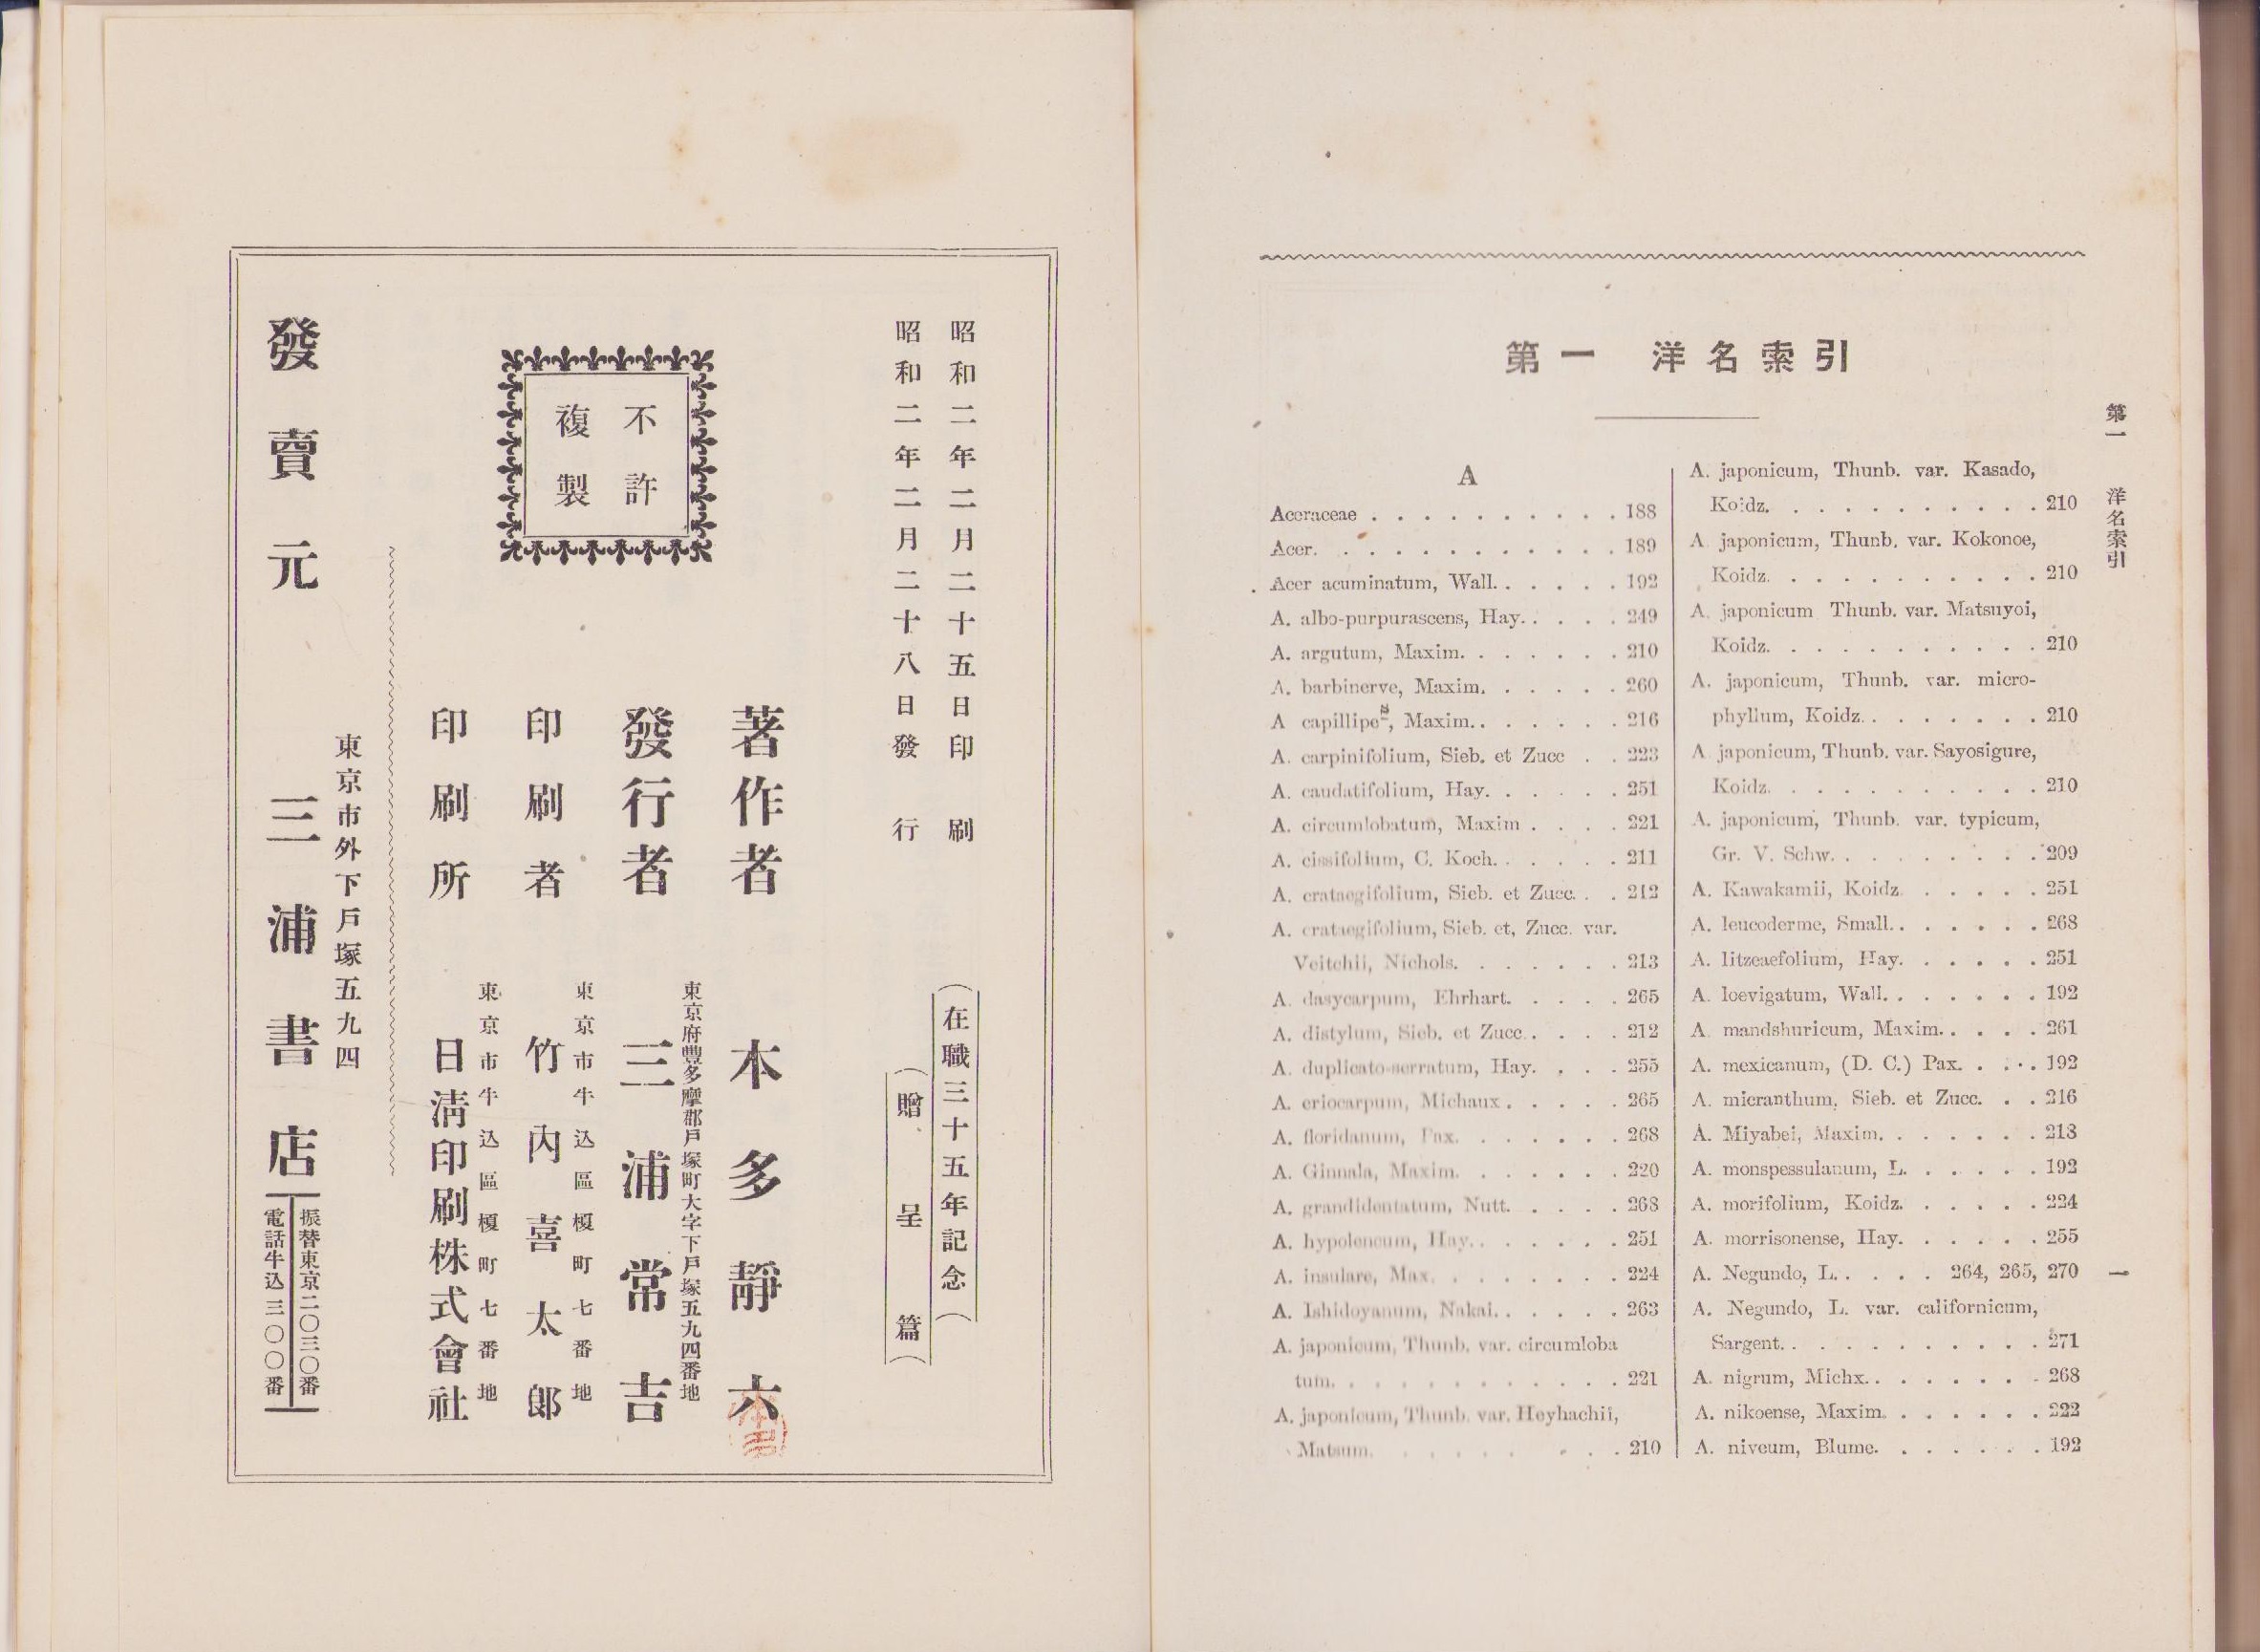 昭和二年二月二十五日印刷
昭和二年二月二十八日發行
（在職三十五年記念）
（贈呈篇）
不許
複製
著作者 本多靜六
東京府豐多摩郡戶塚町大字下戶塚五九四番地
發行者 三浦常吉
東京市牛込區榎町七番地
印刷者 竹內喜太郎
東京市牛込區榎町七番地
印刷所 日淸印刷株式會社
東京市外下戶塚五九四
發賣元 三浦書店
振替東京二〇三〇番
電話牛込三〇〇〇番
第一 洋名索引
A
Aceraceae . . . . . . . . . . 188
Acer. . . . . . . . . . . . 189
Acer acuminatum, Wall. . . . . . 192
A. albo-purpurascens, Hay. . . . . 249
A. argutum, Maxim. . . . . . . 210
A. barbinerve, Maxim. . . . . . 260
A capillipes, Maxim. . . . . . . 216
A. carpinifolium, Sieb. et Zucc . . 223
A. caudatifolium, Hay. . . . . . 251
A. circumlobatum, Maxim . . . . 221
A. cissifolium, C. Koch. . . . . . 211
A. crataegifolium, Sieb. et Zucc. . . 212
A. crataegifolium, Sieb. et, Zucc. var.
Veitchii, Nichols. . . . . . . 213
A. dasycarpum, Ehrhart. . . . . 265
A. distylum, Sieb. et Zucc. . . . . 212
A. duplicato-serratum, Hay. . . . 255
A. eriocarpum, Michaux . . . . . 265
A. floridanum, Pax. . . . . . . 268
A. Ginnala, Maxim. . . . . . . 220
A. grandidentatum, Nutt. . . . . 268
A. hypoleucum, Hay. . . . . . . 251
A. insulare, Max. . . . . . . . 224
A. Ishidoyanum, Nakai. . . . . . 263
A. japonicum, Thunb. var. circumloba
tum. . . . . . . . . . . . 221
A. japonicum, Thunb. var. Heyhachii,
Matsum. . . . . . . . . 210
A. japonicum, Thunb. var. Kasado,
Koidz. . . . . . . . . . . 210
A. japonicum, Thunb. var. Kokonoe,
Koidz. . . . . . . . . . . 210
A. japonicum Thunb. var. Matsuyoi,
Koidz. . . . . . . . . . . 210
A. japonicum, Thunb. var. micro-
phyllum, Koidz. . . . . . . . 210
A. japonicum, Thunb. var. Sayosigure,
Koidz. . . . . . . . . . . 210
A. japonicum, Thunb. var. typicum,
Gr. V. Schw. . . . . . . . . 209
A. Kawakamii, Koidz. . . . . . 251
A. leucoderme, Small. . . . . . . 268
A. litzeaefolium, Hay. . . . . . 251
A. loevigatum, Wall. . . . . . . 192
A. mandshuricum, Maxim. . . . . 261
A. mexicanum, (D. C.) Pax. . . . . 192
A. micranthum, Sieb. et Zucc. . . 216
A. Miyabei, Maxim. . . . . . . 213
A. monspessulanum, L. . . . . . 192
A. morifolium, Koidz. . . . . . 224
A. morrisonense, Hay. . . . . . 255
A. Negundo, L. . . . . 264, 265, 270
A. Negundo, L. var. californicum,
Sargent. . . . . . . . . . . 271
A. nigrum, Michx. . . . . . . . 268
A. nikoense, Maxim. . . . . . . 222
A. niveum, Blume. . . . . . . 192
第一 洋名索引
一